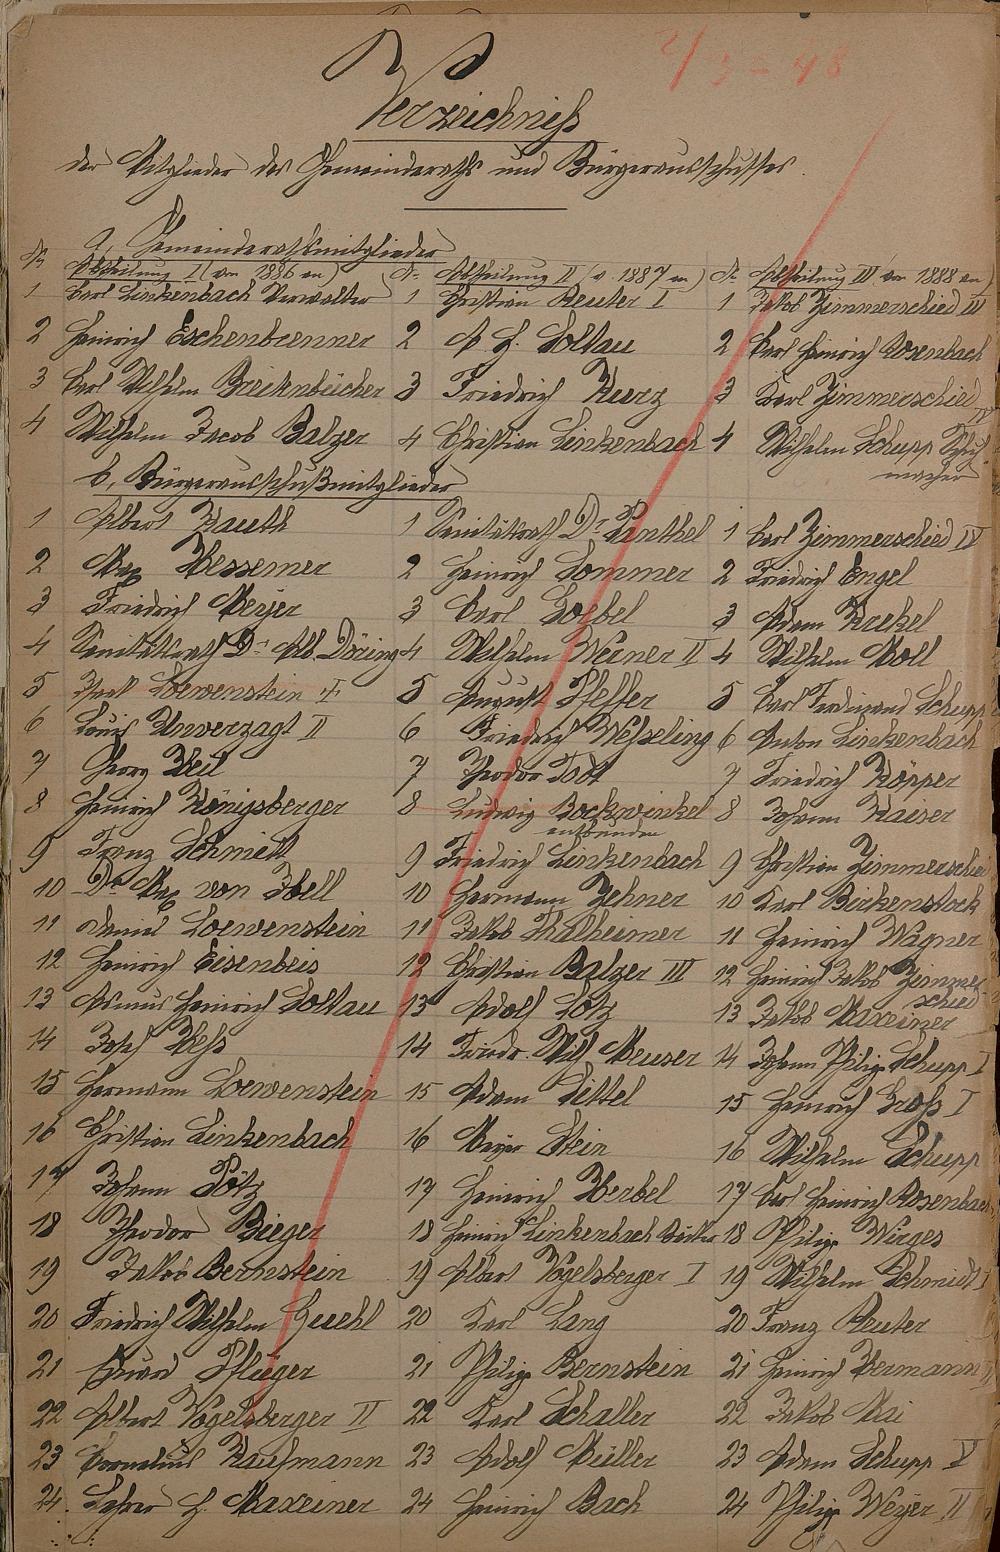 2/3 = 48
Verzeichniß
der Mitglieder des Gemeinderaths und Bürgerausschusses.
a, Gemeinderathsmitglieder
No Abtheilung I (von 1886 an) No Abtheilung II (v. 1887 an) No Abtheilung III von 1888 an)
1 Carl Linkenbach Verwalter 1 Christian Reuter I 1 Jakob Zimmerschied III
2 Heinrich Eschenbrenner 2 A H. Soltau 2 Carl Heinrich Rosenbach
3 Carl Wilhelm Breitenbücher 3 Friedrich Kurz 3 Karl Zimmerschied IV
4 Wilhelm Jacob Balzer 4 Christian Linkenbach 4 Wilhelm Schupp Schuh-
macher
b, Bürgerausschußmitglieder
1 Albert Kauth 1 Sanitätsrath Dr Panthel 1 Carl Zimmerschied IV
2 Max Messemer 2 Heinrich Sommer 2 Friedrich Engel
3 Friedrich Meyer 3 Carl Goebel 3 Adam Krekel
4 Sanitätsrath Dr Alb Döring 4 Wilhelm Werner II 4 Wilhelm Moll
5 Loewenstein I 5 August Pfeffer 5 Carl Ferdinand Schupp
6 Louis Unverzagt II 6 Friedrich Weßling 6 Anton Linkenbach
7 Georg Weil 7 Theodor Todt 7 Friedrich Köpper
8 Heinrich Königsberger 8 Ludwig Bockwinkel 8 Johann Kaiser
entbunden
9 Franz Schmitt 9 Friedrich Linkenbach 9 Christian Zimmerschied
10 Dr Max von Ibell 10 Hermann Zehner 10 Karl Birkenstock
11 Daniel Loewenstein 11 Jakob Thalheimer 11 Heinrich Wagner
12 Heinrich Eisenbeis 12 Christian Balzer III 12 Heinrich Jakob Zimmer
schied
13 Asmus Heinrich Soltau 13 Adolf Lotz 13 Jakob Maxeiner
14 Josef Heß 14 Friedr. Wilh Meuser 14 Johann Philipp Schupp I
15 Hermann Loewenstein 15 Adam Sittel 15 Heinrich Groß I
16 Christian Linkenbach 16 Mayer Stein 16 Wilhelm Schupp
17 Johann Pötz 17 Heinrich Herbel 17 Carl Heinrich Rosenbach
18 Theodor Bieger 18 Heinrich Linkenbach Bäcker 18 Philipp Wirges
19 Jakob Bernstein 19 Albert Vogelsberger I 19 Wilhelm Schmidt I
20 Friedrich Wilhelm Quehl 20 Karl Lang 20 Franz Reuter
21 Eduard Pflüger 21 Philipp Bernstein 21 Heinrich Hermann II
22 Albert Vogelsberger II 22 Karl Schaller 22 Jakob Mai
23 Cornelius Kaufmann 23 Adolf Müller 23 Adam Schupp V
24. Lehrer H. Maxeiner 24 Heinrich Bach 24 Philipp Weyer II